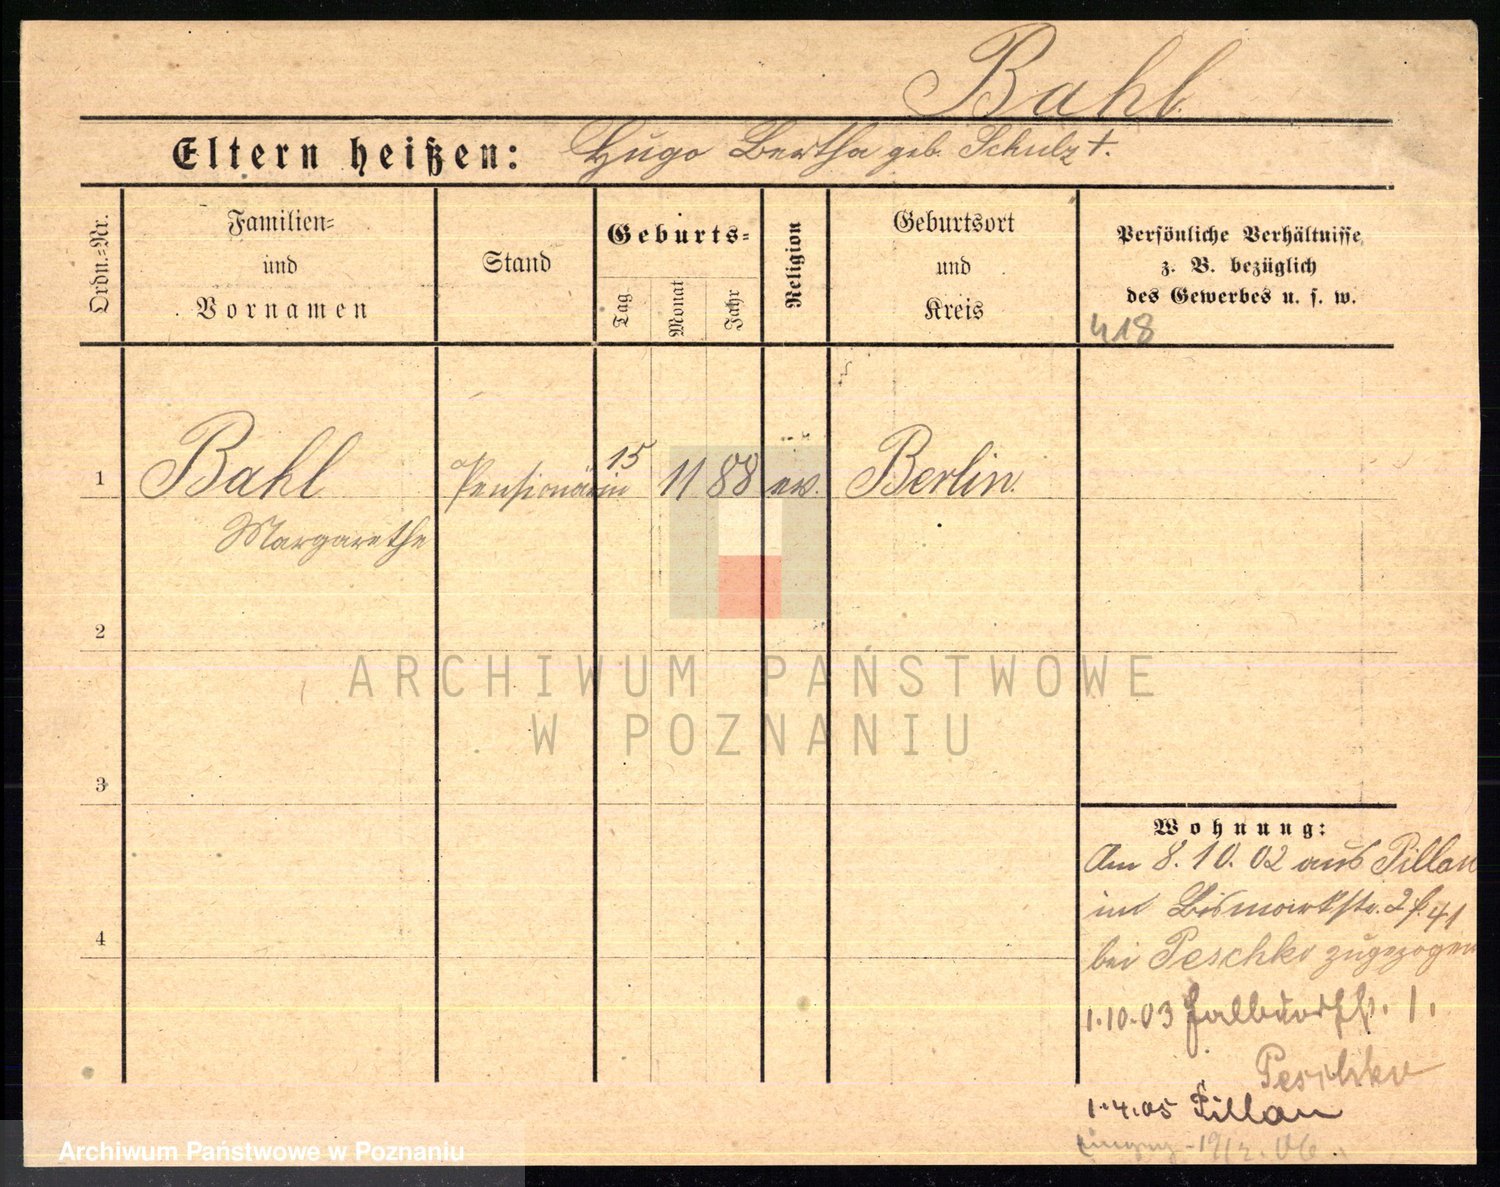 Bahl.
Eltern heißen: Hugo Bertha geb. Schulz †.
Ordn.=Nr.
Familien=
und
Vornamen
Stand
Geburts=
Tag
Monat
Jahr
Religion
Geburtsort
und
Kreis
Persönliche Verhältnisse
z. B. bezüglich
des Gewerbes u. s. w.
418
1 Bahl Pensionärin 15 11 88 ev. Berlin.
Margarethe
2
ARCHIWUM PAŃSTWOWE
W POZNANIU
3
Wohnung:
Am 8. 10. 02 aus Pillau
in Bismarkstr. 41
bei Peschko zugezogen
4
1.10.03 1.
Peschko
1.4.05 Pillau
06.
Archiwum Państwowe w Poznaniu